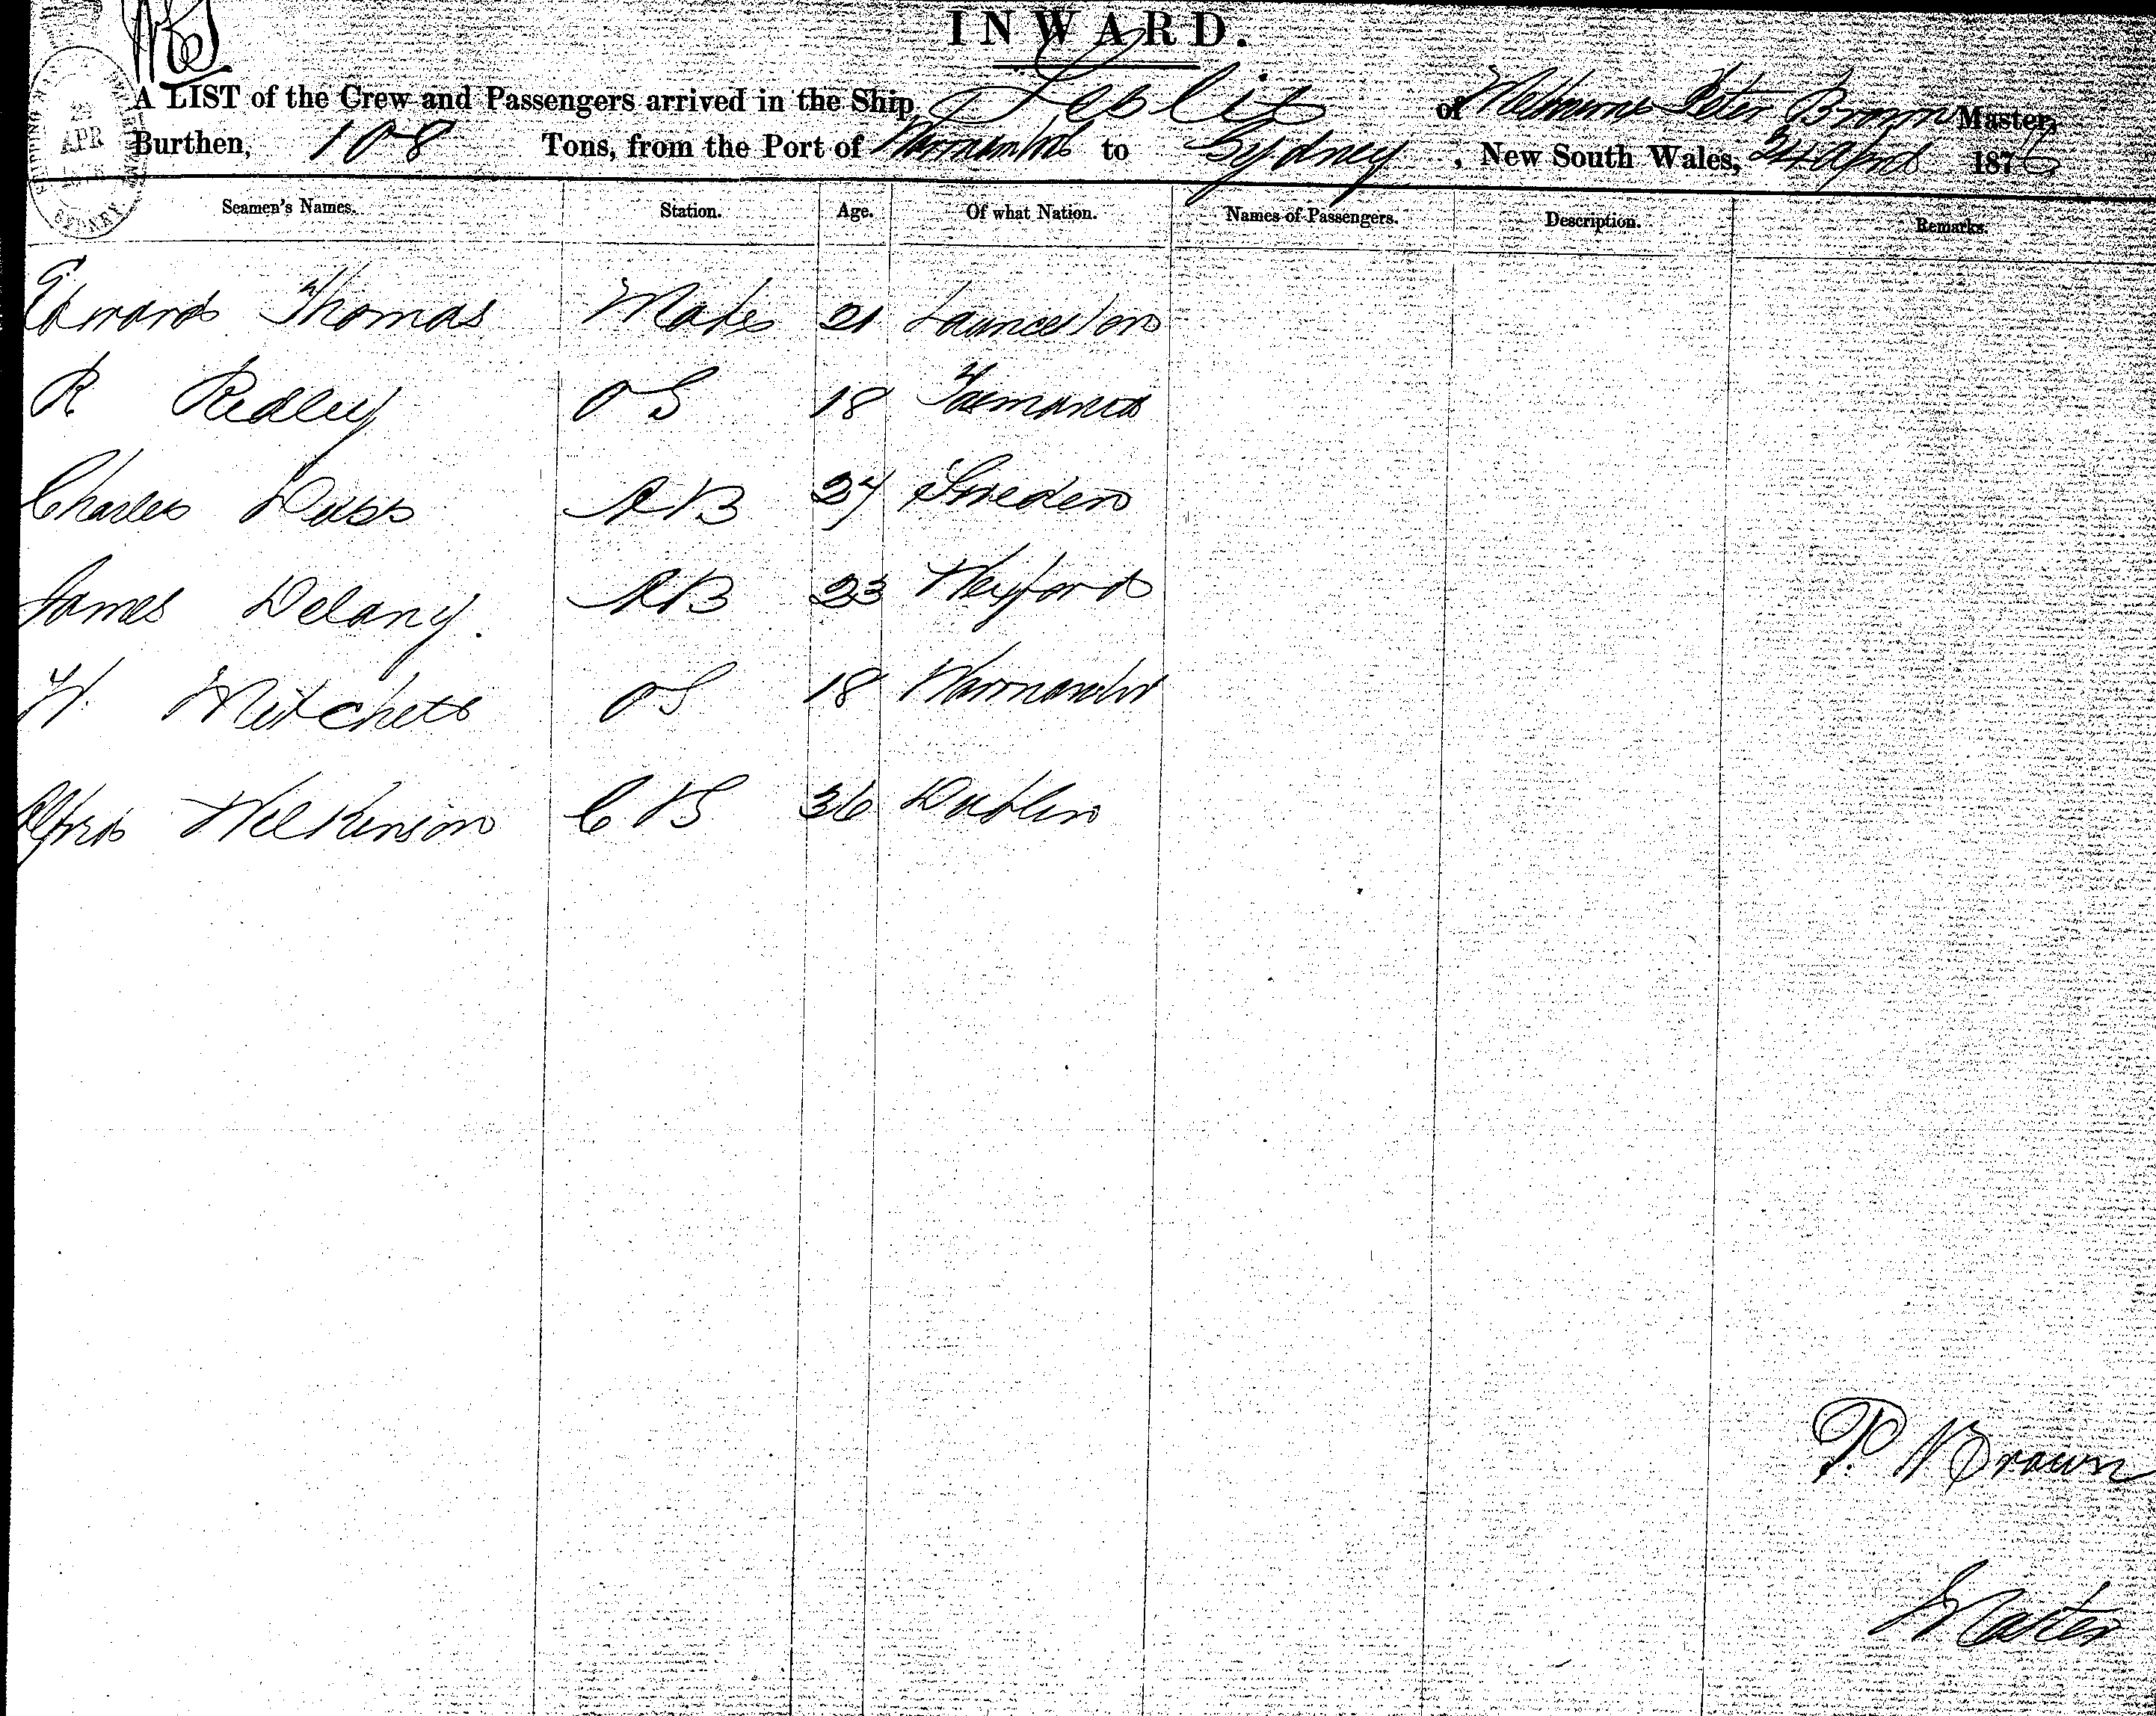 INWARD.
A LIST of the Crew and Passengers arrived in the Ship Leslie of Melbourne Peter Brown Master,
Burthen, 108 Tons, from the Port of Warrnambool to Sydney, New South Wales, 24 April 1876
APR
SYDNEY
Seamen's Names. Station. Age. Of what Nation. Names of Passengers. Description. Remarks.
Edward Thomas Mate 21 Launceston
R Redley OS 18 Tasmania
Charles Dass AB 27 Sweden
James Delany. AB 23 Wexford
W. Mitchell OS 18
Alfred Wilkinson C & S 36 Dublin
P. Brown
Master